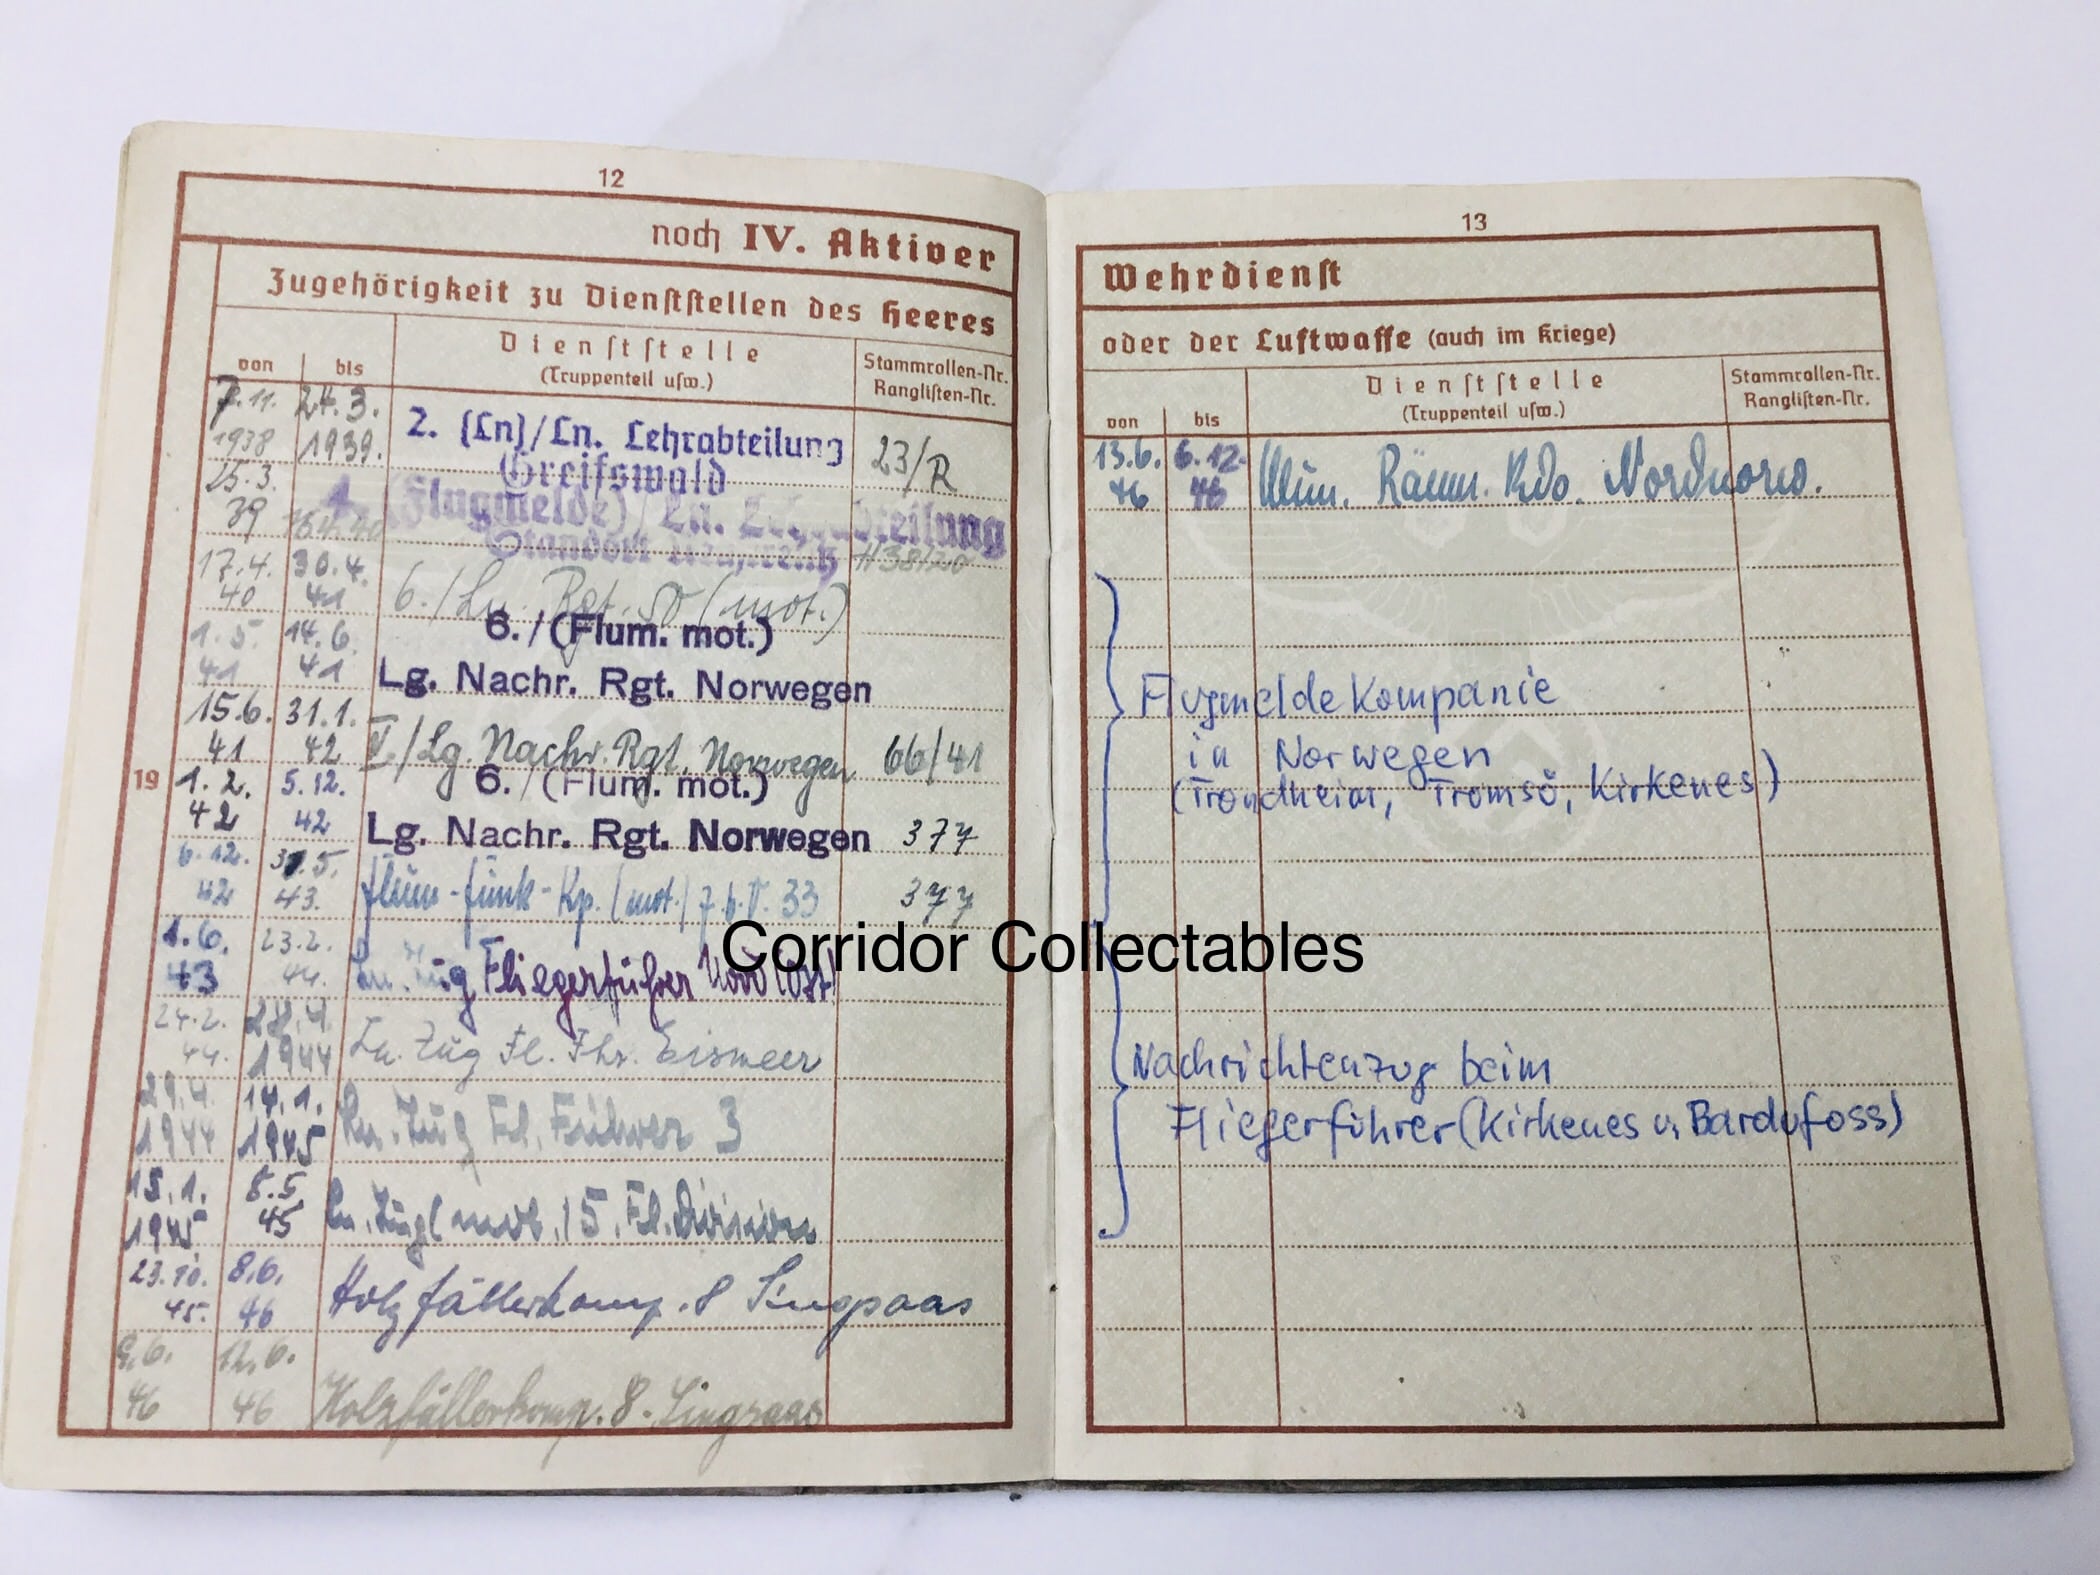 12
noch IV. Aktiver
Zugehörigkeit zu Dienststellen des Heeres
von
bis
Dienststelle
(Truppenteil usw.)
Stammrollen-Nr.
Ranglisten-Nr.
7.11. 24.3.
1938 1939.
2. (Ln)/Ln. Lehrabteilung
Greifswald
23/R
25.3.
39
(Flugmelde)/Ln. Lehrabteilung
Standort
17.4. 30.4.
40 41
6./Ln. Rgt. (mot.)
1.5. 14.6.
41 41
6./(Flum. mot.)
Lg. Nachr. Rgt. Norwegen
15.6. 31.1.
41 42
/Lg. Nachr. Rgt. Norwegen 66/41
19
1.2. 5.12.
42 42
6./(Flum. mot.)
Lg. Nachr. Rgt. Norwegen 377
6.12. 31.5.
42 43.
Flum-Funk-Kp. (mot.) z.b.V. 33 377
1.6. 23.2.
43 44.
Ln. Zug Fliegerführer Nord (Ost)
24.2. 28.4.
44. 1944
Ln. Zug Fl. Fhr. Eismeer
29.4. 14.1.
1944 1945
Ln. Zug Fl. Führer 3
15.1. 8.5.
1945 45
Ln. Zug (mot.) 5. Fl. Division
23.10. 8.6.
45. 46
Holzfällerkomp. 8 Singsaas
9.6. 12.6.
46 46
Holzfällerkomp. 8. Singsaas
13
Wehrdienst
oder der Luftwaffe (auch im Kriege)
von
bis
Dienststelle
(Truppenteil usw.)
Stammrollen-Nr.
Ranglisten-Nr.
13.6. 6.12.
46 46
Mun. Räum. Kdo. Nordnorw.
Flugmeldekompanie
in Norwegen
(Trondheim, Tromsö, Kirkenes)
Nachrichtenzug beim
Fliegerführer (Kirkenes u. Bardufoss)
Corridor Collectables